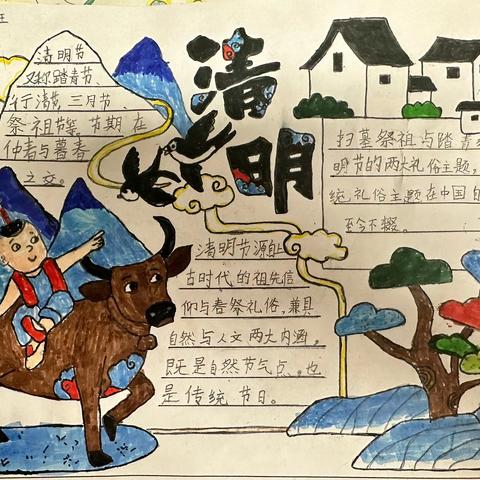 清明
清明节
又称踏青节、
行清节、三月节、
祭祖节等,节期在
仲春与暮春
之交。
扫墓祭祖与踏青
明节的两大礼俗主题,
统礼俗主题在中国自
至今不辍。
清明节源自上
古时代的祖先信
仰与春祭礼俗,兼具
自然与人文两大内涵。
既是自然节气点,也
是传统节日。